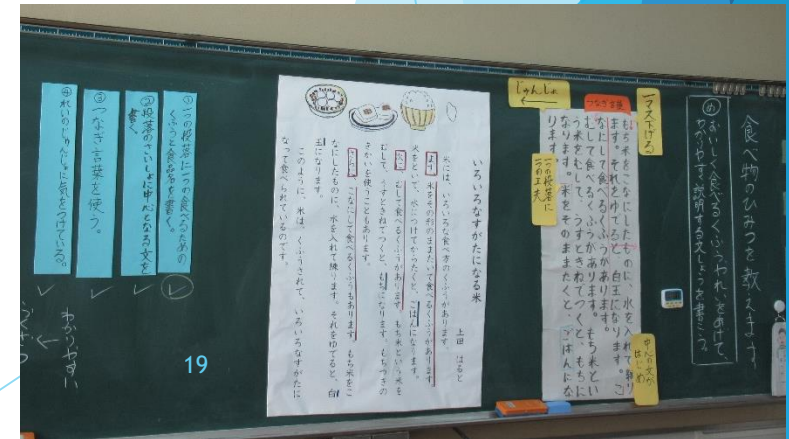 食べ物のひみつを教えます
め おいしく食べるくふうやれいをあげて、
わかりやすく説明する文しょうを書こう。
一マス下げる
つなぎ言葉
じゅんじょ
もち米をこなにしたものに、水を入れて練り
ます。それをゆでると、白玉になります。こ
なにして食べるくふうがあります。もち米とい
むして食べるくふうがあります。もち米とい
う米をむして、うすときねでつくと、もちに
なります。米をそのままたくと、ごはんにな
ります。
一つの段落に
一つの工夫
中心の文が
はじめ
いろいろなすがたになる米
上田 はると
米には、いろいろな食べ方のくふうがあります。
まず、米をその形のままたいて食べるくふうがあります。
米をといで、水につけてからたくと、ごはんになります。
次に、むして食べるくふうがあります。もち米という米を
むして、うすときねでつくと、もちになります。もちつきの
きかいを使うこともあります。
さらに、こなにして食べるくふうもあります。もち米をこ
なにしたものに、水を入れて練ります。それをゆでると、白
玉になります。
このように、米は、くふうされて、いろいろなすがたに
なって食べられているのです。
①一つの段落に一つの食べるための
くふうと食品名を書く。
②段落のさいしょに中心となる文を
書く。
③つなぎ言葉を使う。
④れいのじゅんじょに気をつけている。
わかりやすい
19